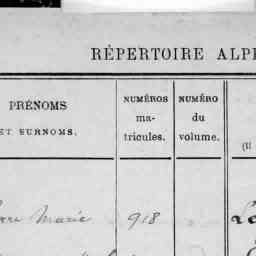 RÉPERTOIRE ALP
PRÉNOMS
ET SURNOMS.
NUMÉROS
ma-
tricules.
NUMÉRO
du
volume.
(Il
Marie 918